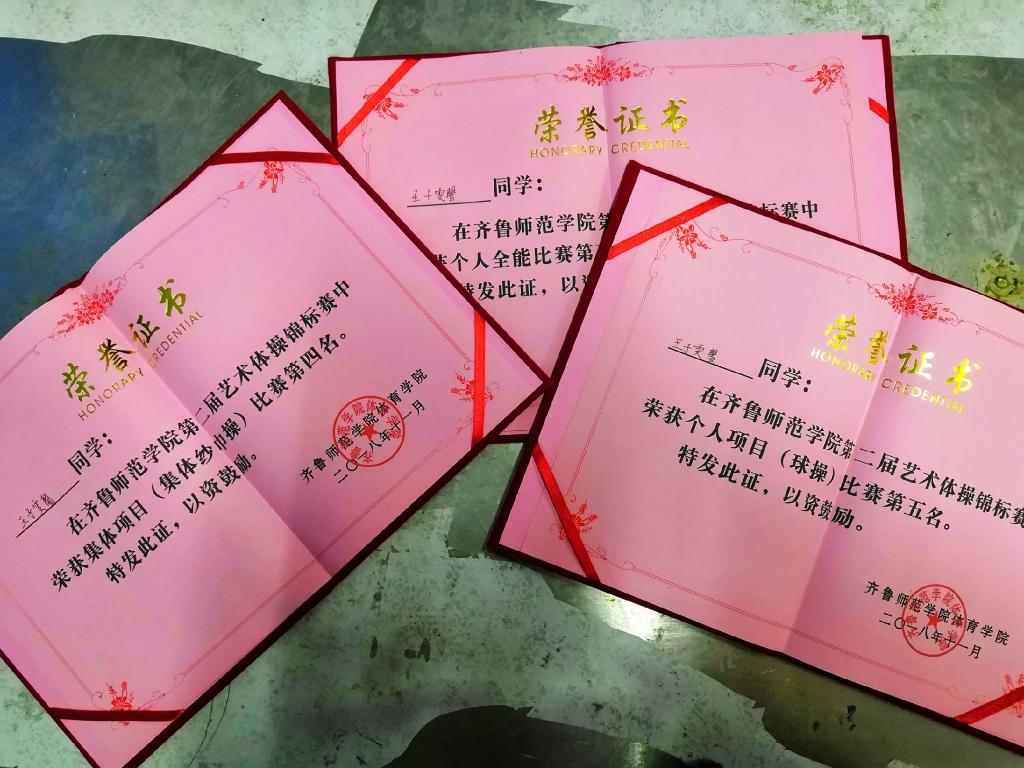 荣誉证书
HONORARY CREDENTIAL
同学：
在齐鲁师范学院第二届艺术体操锦标赛中
荣获集体项目（集体纱巾操）比赛第四名。
特发此证，以资鼓励。
齐鲁师范学院体育学院
二〇一八年十一月
荣誉证书
HONORARY CREDENTIAL
同学：
在齐鲁师范学院第 标赛中
个人全能比赛第
特发此证，以资
荣誉证书
HONORARY CREDENTIAL
同学：
在齐鲁师范学院第二届艺术体操锦标赛
荣获个人项目（球操）比赛第五名。
特发此证，以资鼓励。
齐鲁师范学院体育学院
二〇一八年十一月